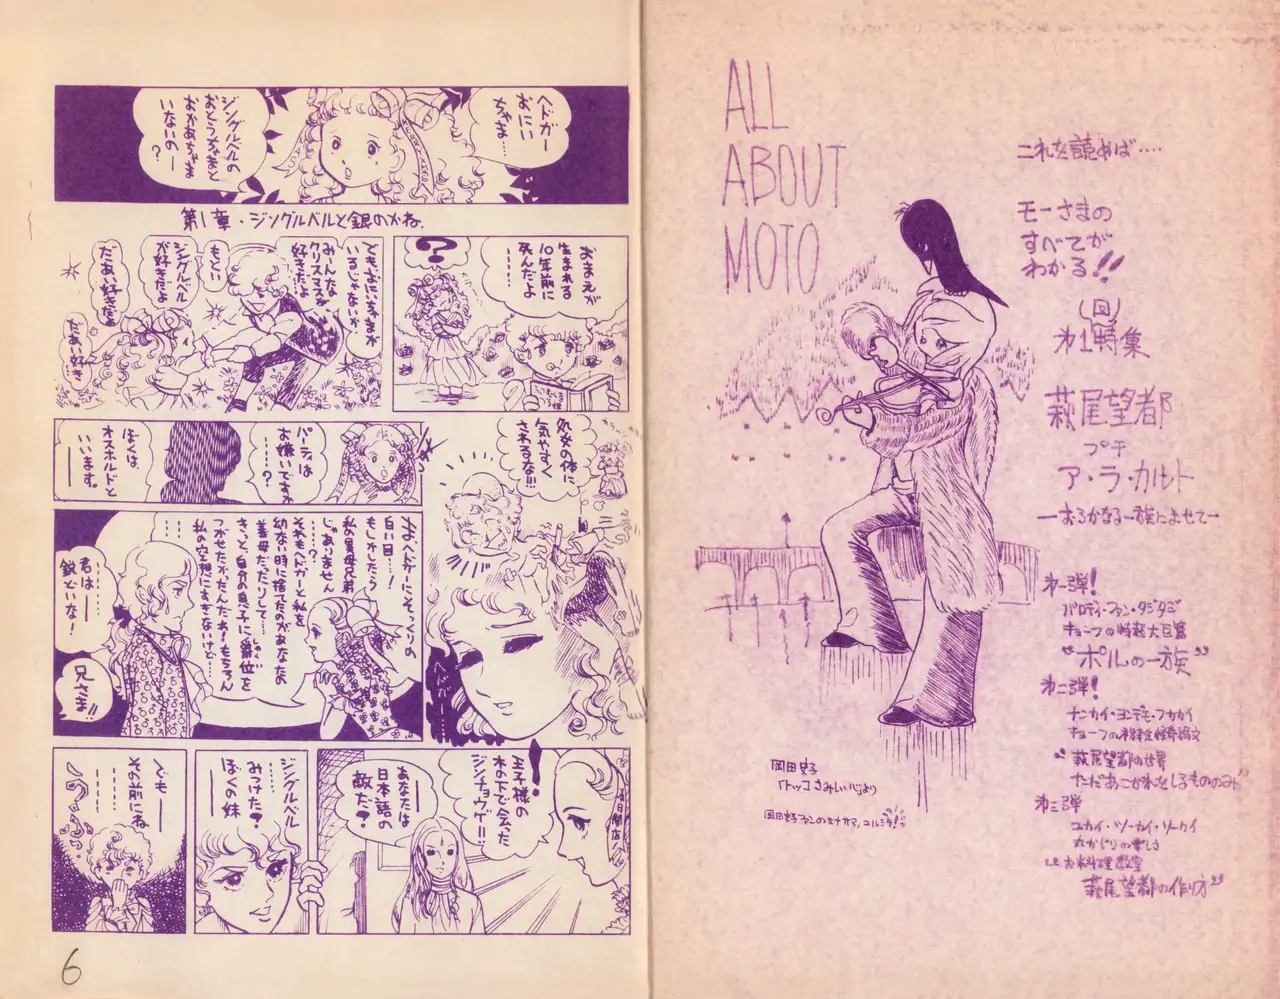 ヘドガー
おにい
ちゃま…
ジングルベルの
おとうちゃまと
おかあちゃま
いないのー
?
第1章・ジングルベルと銀のかね.
おまえが
生まれる
10年前に
死んだよ
……
?
でもおにいちゃまが
いるじゃないか、
みんな
クリスマスが
好きだよ
もちい
ジングルベル
が好きだよ
だあい好きだよ
だあい好き
処女の体に
気やすく
されるな!!!
パーティは
お嫌いですか
……?
ぼくは
オスホルドと
いいます。
おヘドガーにそっくりの
白い目…!
もしかしたら
私の異母兄弟
じゃありません
……?
それもヘドガーと私を
幼ない時に捨てたのがあなたの
義母だったりして……
きっと自分の息子に爵位を
しゃくい
つがせたかったんだわ!もちろん
私の空想にすぎないけど……
……
君はー
鋭どいな!
兄さま!!
王子様の
木の下で会った
ジンチョウゲ!!
!
あなたは
日本語の
敵だ?
ジングルベル
みつけた?
ぼくの妹
でもー
その前にね
6
ALL
ABOUT
MOTO
これを読めば‥‥
モーさまの
すべてが
わかる!!
(回)
才1特集
萩尾望都
プチ
ア・ラ・カルト
―おろかなる一族によせて―
才一弾!
パロディ・ファン・タジタジ
キョーフの特報大巨篇
"ポルの一族"
才二弾!
ナンカイ・ヨンデモ・フカカイ
"萩尾望都の世界
ただあこがれをしるもののみ"
才三弾
ユカイ・ツーカイ・ソーカイ
丸かじりの楽しさ
お料理教室
萩尾望都の作り方"
岡田史子
「トッコさみしい心」より
岡田史子ファンのミナサマ、ユルシテ!